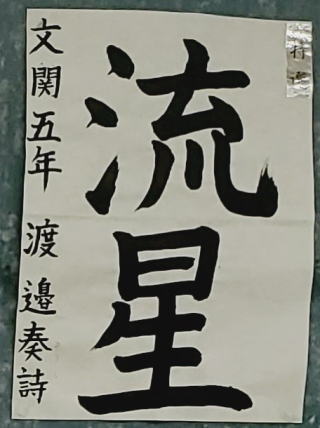 流星
文関五年 渡邉奏詩